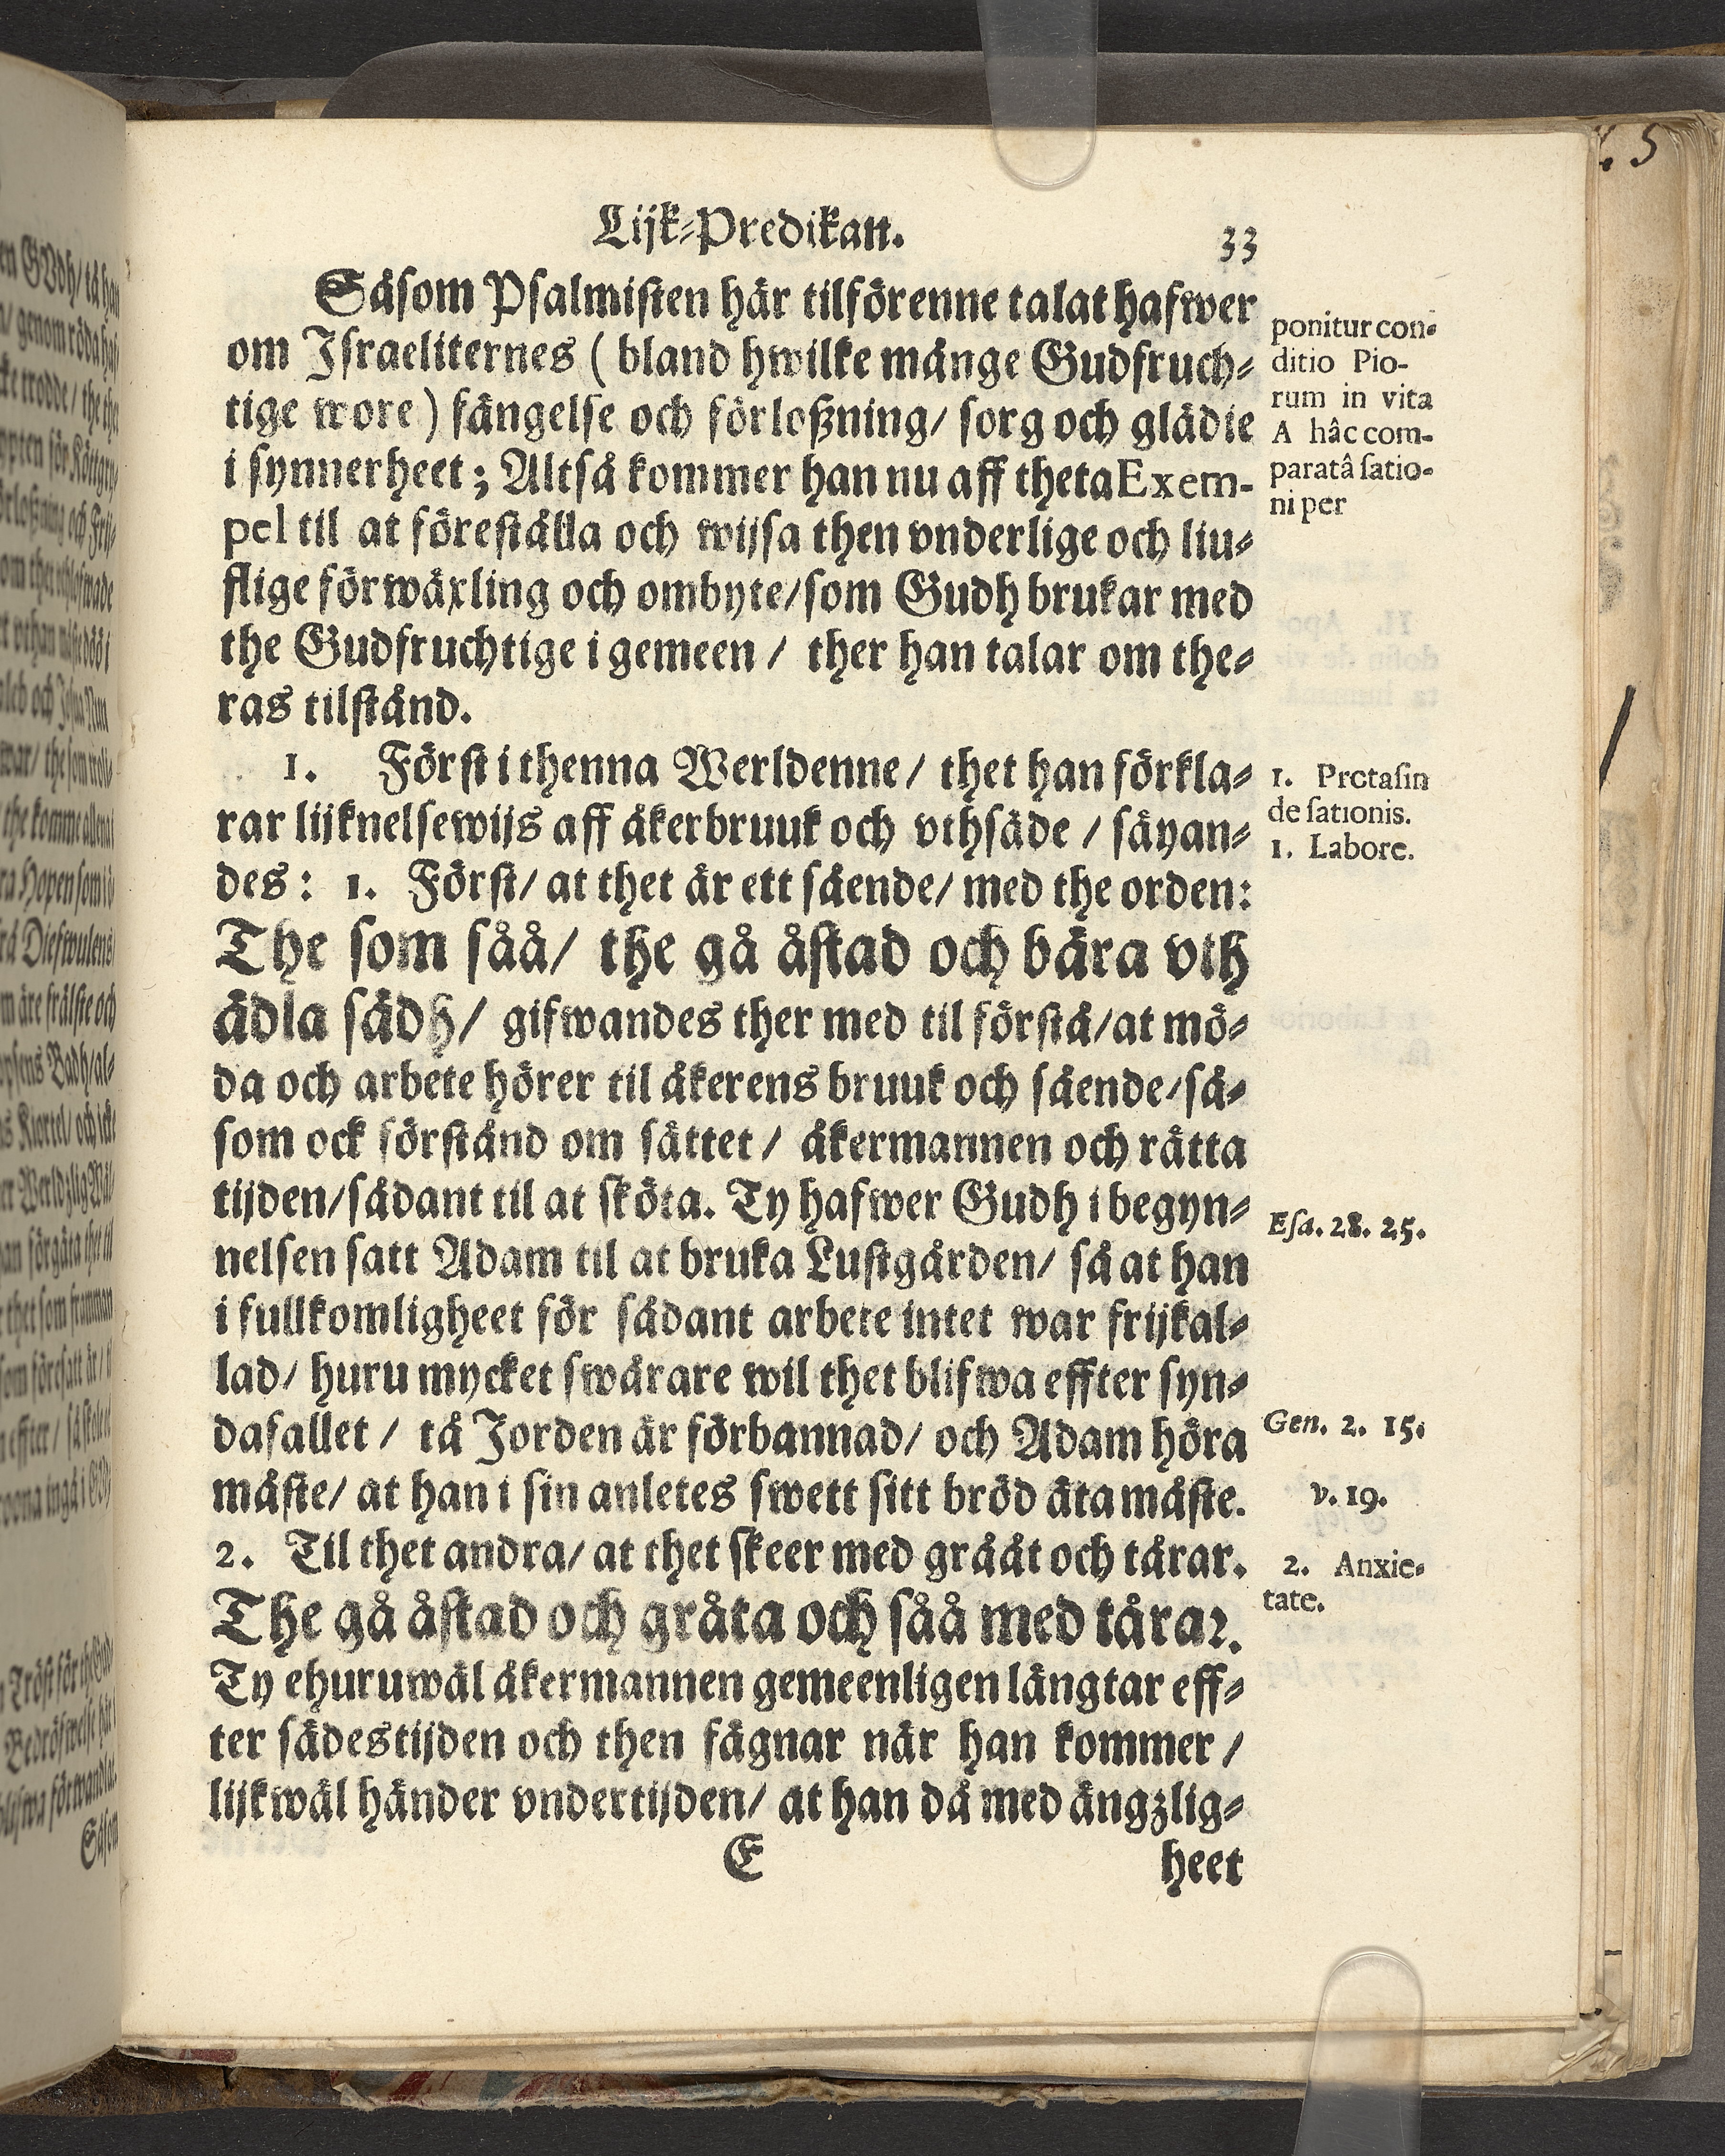 Lijk-Predikan. 33
Såsom Psalmisten här tilförenne talat hafwer
om Israeliternes (bland hwilke månge Gudfruch-
tige wore) fängelse och förloßning/ sorg och glädie
i synnerheet; Altså kommer han nu aff theta Exem-
pel til at föreställa och wijsa then vnderlige och liu-
flige förwäxling och ombyte/som Gudh brukar med
the Gudfruchtige i gemeen / ther han talar om the-
ras tilstånd.
1. Först i thenna Werldenne/ thet han förkla-
rar lijknelsewijs aff åkerbruuk och vthsäde / säyan-
des: 1. Först/ at thet är ett sående/ med the orden:
The som såå/ the gå åstad och bära vth
ädla sädh/ gifwandes ther med til förstå/at mö-
da och arbete hörer til åkerens bruuk och sående/så-
som ock förstånd om sättet / åkermannen och rätta
tijden/sådant til at sköta. Ty hafwer Gudh i begyn-
nelsen satt Adam til at bruka Lustgården/ så at han
i fullkomligheet för sådant arbete intet war frijkal-
lad/ huru mycket swårare wil thet blifwa effter syn-
dafallet / tå Jorden är förbannad/ och Adam höra
måste/ at han i sin anletes swett sitt bröd äta måste.
2. Til thet andra/ at thet skeer med grååt och tårar.
The gå åstad och gråta och såå med tårar.
Ty ehuruwäl åkermannen gemeenligen längtar eff-
ter sädestijden och then fägnar när han kommer /
lijkwäl händer vndertijden/ at han då med ängzlig-
E heet
ponitur con-
ditio Pio-
rum in vita
A hâc com-
paratâ satio-
ni per
1. Protasin
de sationis.
1. Labore.
Esa. 28. 25.
Gen. 2. 15.
v. 19.
2. Anxie-
tate.